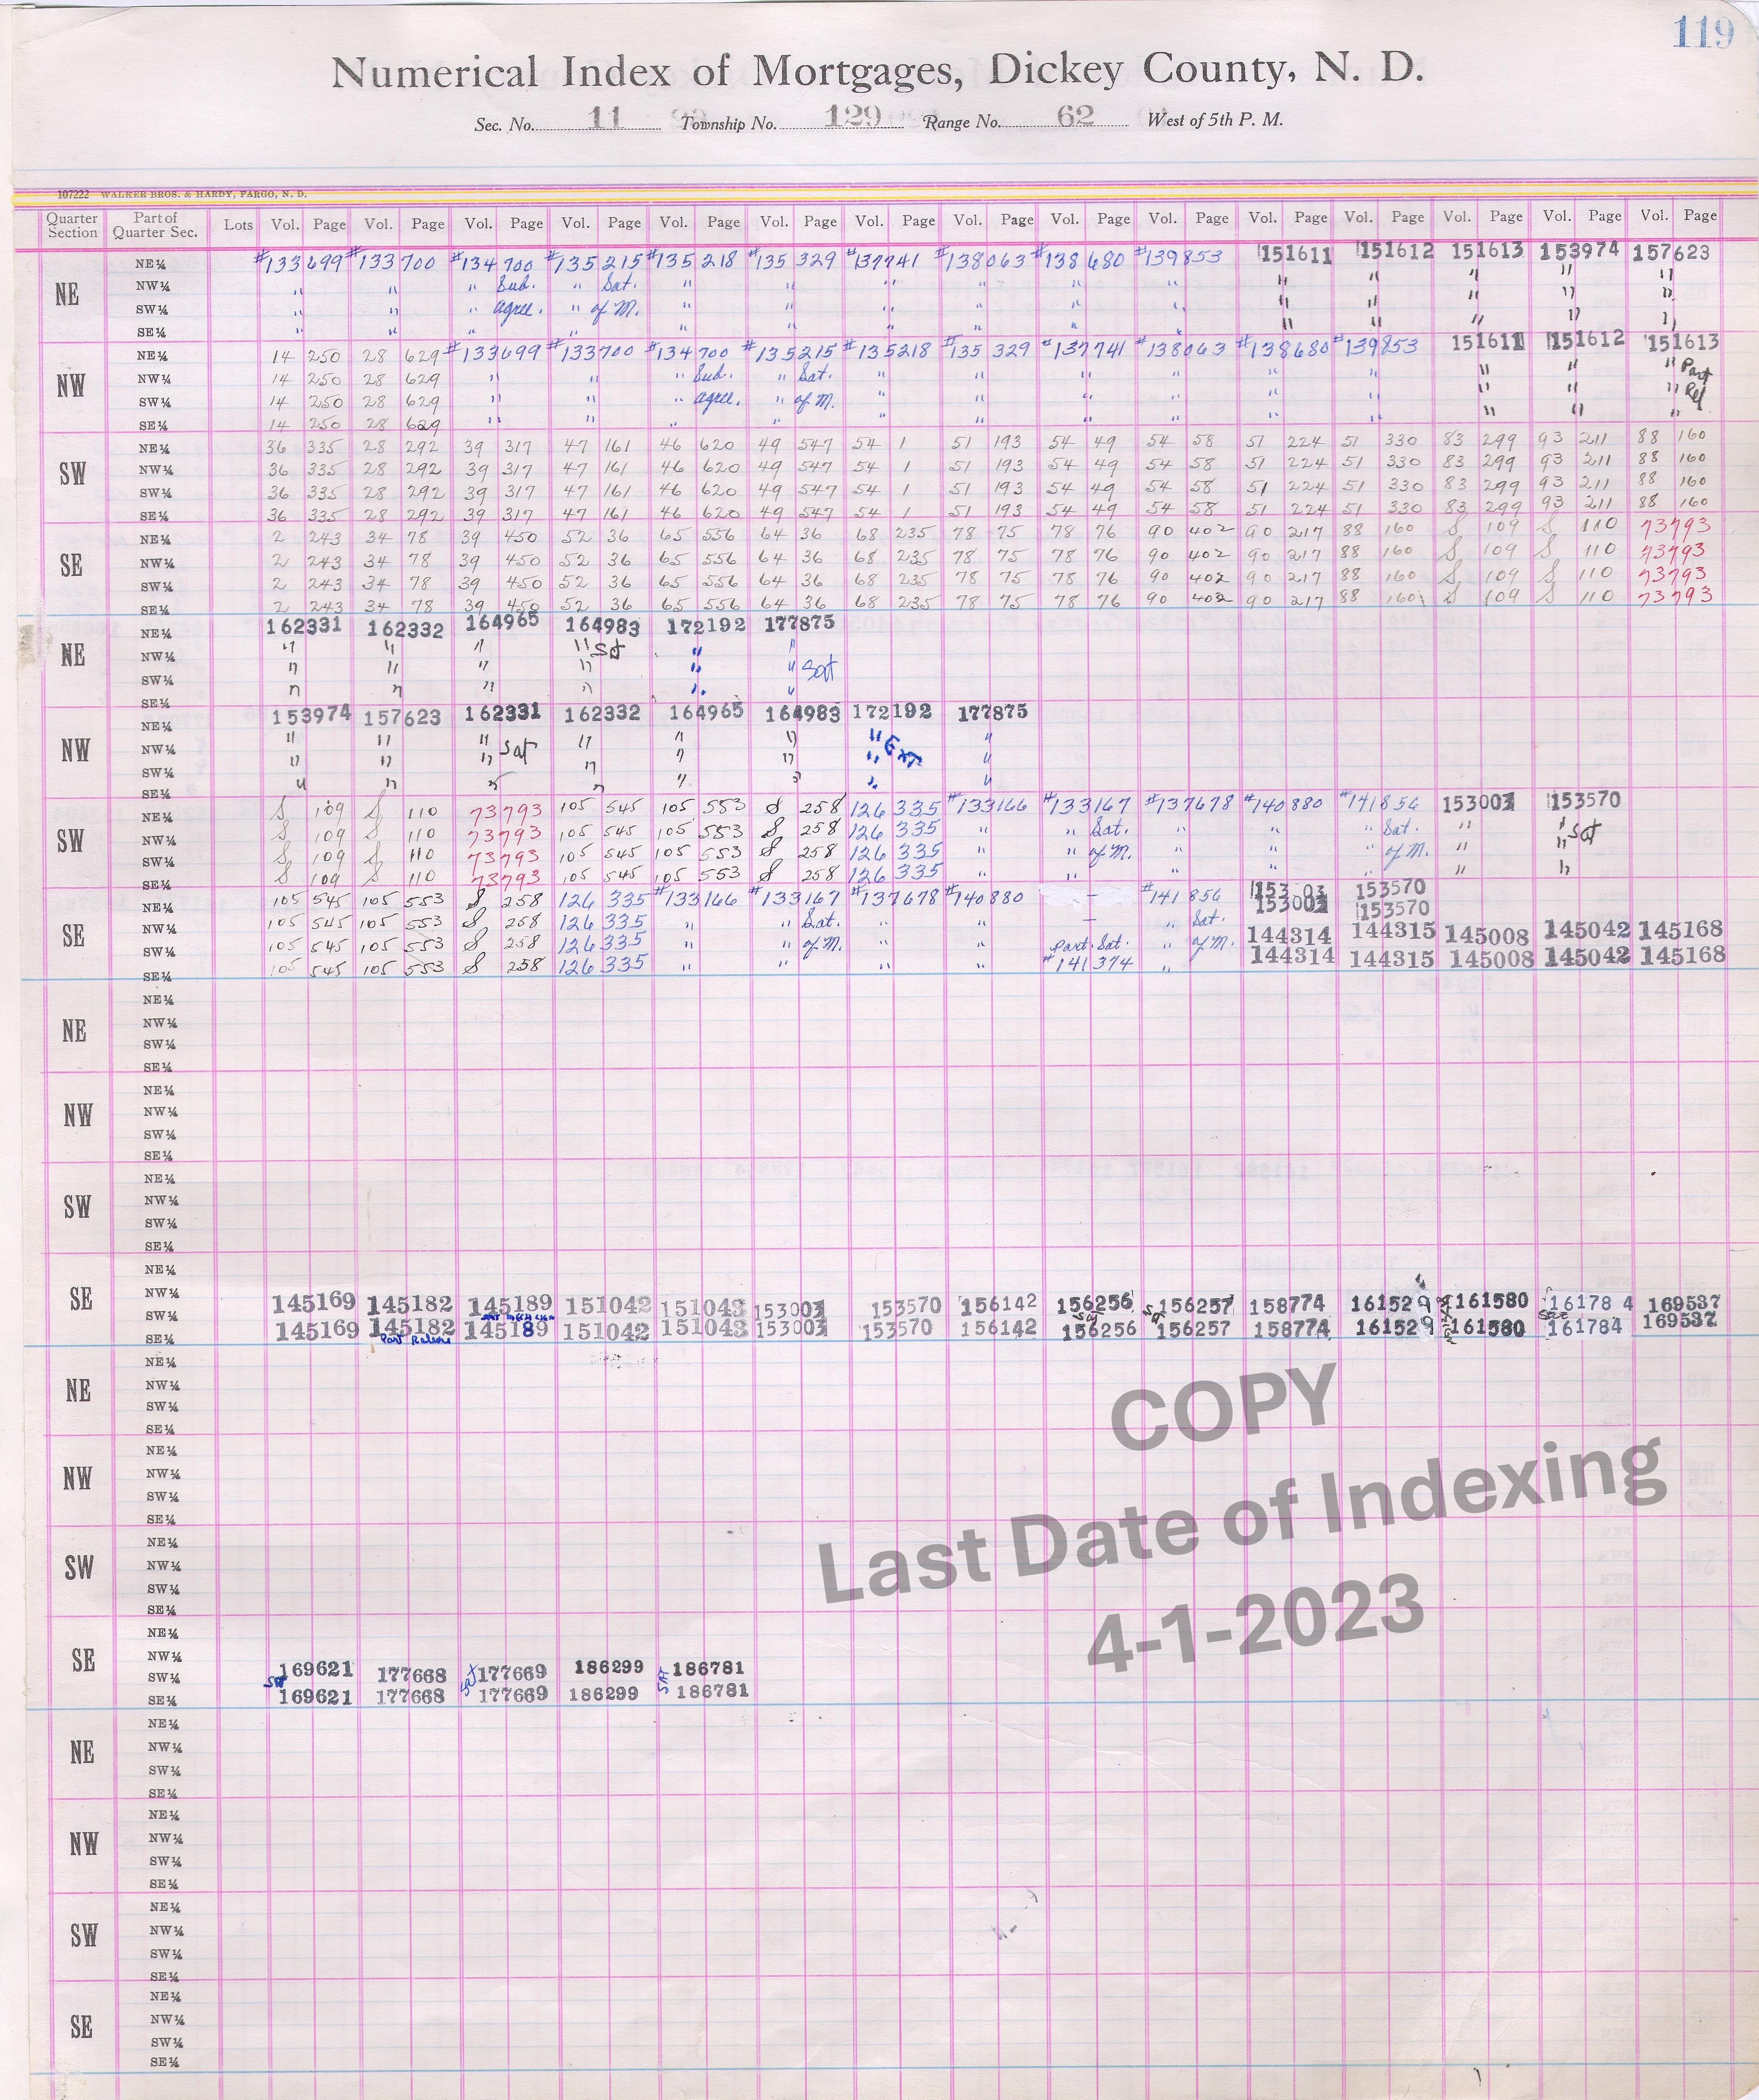 119
Numerical Index of Mortgages, Dickey County, N. D.
Sec. No. 11 Township No. 129 Range No. 62 West of 5th P. M.
107222 WALKER BROS. & HARDY, FARGO, N. D.
Quarter Section Part of Quarter Sec. Lots Vol. Page Vol. Page Vol. Page Vol. Page Vol. Page Vol. Page Vol. Page Vol. Page Vol. Page Vol. Page Vol. Page Vol. Page Vol. Page Vol. Page Vol. Page
NE
NE¼ #133699 #133700 #134700 #135215 #135218 #135329 #137741 #138063 #138680 #139853 151611 151612 151613 153974 157623
NW¼ " " " Sub. " Sat. " " " " " " " " " " "
SW¼ " " " agree. " of M. " " " " " " " " " " "
SE¼ " " " " " " " " " " " " " " "
NW
NE¼ 14 250 28 629 #133699 #133700 #134700 #135215 #135218 #135329 #137741 #138063 #138680 #139853 151611 151612 151613
NW¼ 14 250 28 629 " " " Sub. " Sat. " " " " " " " " " Part
SW¼ 14 250 28 629 " " " agree. " of M. " " " " " " " " " Rel
SE¼ 14 250 28 629 " " " " " " " " " " " " "
SW
NE¼ 36 335 28 292 39 317 47 161 46 620 49 547 54 1 51 193 54 49 54 58 51 224 51 330 83 299 93 211 88 160
NW¼ 36 335 28 292 39 317 47 161 46 620 49 547 54 1 51 193 54 49 54 58 51 224 51 330 83 299 93 211 88 160
SW¼ 36 335 28 292 39 317 47 161 46 620 49 547 54 1 51 193 54 49 54 58 51 224 51 330 83 299 93 211 88 160
SE¼ 36 335 28 292 39 317 47 161 46 620 49 547 54 1 51 193 54 49 54 58 51 224 51 330 83 299 93 211 88 160
SE
NE¼ 2 243 34 78 39 450 52 36 65 556 64 36 68 235 78 75 78 76 90 402 90 217 88 160 S 109 S 110 73793
NW¼ 2 243 34 78 39 450 52 36 65 556 64 36 68 235 78 75 78 76 90 402 90 217 88 160 S 109 S 110 73793
SW¼ 2 243 34 78 39 450 52 36 65 556 64 36 68 235 78 75 78 76 90 402 90 217 88 160 S 109 S 110 73793
SE¼ 2 243 34 78 39 450 52 36 65 556 64 36 68 235 78 75 78 76 90 402 90 217 88 160 S 109 S 110 73793
NE
NE¼ 162331 162332 164965 164983 172192 177875
NW¼ " " " " Sat " "
SW¼ " " " " " " Sat
SE¼ " " " " " "
NW
NE¼ 153974 157623 162331 162332 164965 164983 172192 177875
NW¼ " " " Sat " " " " Ext "
SW¼ " " " " " " " "
SE¼ " " " " " " " "
SW
NE¼ S 109 S 110 73793 105 545 105 553 S 258 126 335 #133166 #133167 #137678 #140880 #141856 153003 153570
NW¼ S 109 S 110 73793 105 545 105 553 S 258 126 335 " " Sat. " " " Sat. " " Sat
SW¼ S 109 S 110 73793 105 545 105 553 S 258 126 335 " " of M. " " " of M. " "
SE¼ S 109 S 110 73793 105 545 105 553 S 258 126 335 " " " " " " "
SE
NE¼ 105 545 105 553 S 258 126 335 #133166 #133167 #137678 #140880 – #141856 153 03 153570
NW¼ 105 545 105 553 S 258 126 335 " " Sat. " " – " Sat. 153003 153570
SW¼ 105 545 105 553 S 258 126 335 " " of M. " " Part. Sat. " of M. 144314 144315 145008 145042 145168
SE¼ 105 545 105 553 S 258 126 335 " " " " #141374 " 144314 144315 145008 145042 145168
NE
NE¼
NW¼
SW¼
SE¼
NW
NE¼
NW¼
SW¼
SE¼
SW
NE¼
NW¼
SW¼
SE¼
SE
NE¼
NW¼
SW¼ 145169 145182 145189 151042 151043 153003 153570 156142 156256 Sat 156257 158774 161529 161580 161784 169537
SE¼ 145169 145182 Part Release 145189 151042 151043 153003 153570 156142 156256 156257 158774 161529 161580 161784 169537
NE
NE¼
NW¼
SW¼
SE¼
NW
NE¼
NW¼
SW¼
SE¼
SW
NE¼
NW¼
SW¼
SE¼
SE
NE¼
NW¼
SW¼ Sat 169621 177668 Sat 177669 186299 SAT 186781
SE¼ 169621 177668 177669 186299 186781
NE
NE¼
NW¼
SW¼
SE¼
NW
NE¼
NW¼
SW¼
SE¼
SW
NE¼
NW¼
SW¼
SE¼
SE
NE¼
NW¼
SW¼
SE¼
COPY
Last Date of Indexing
4-1-2023